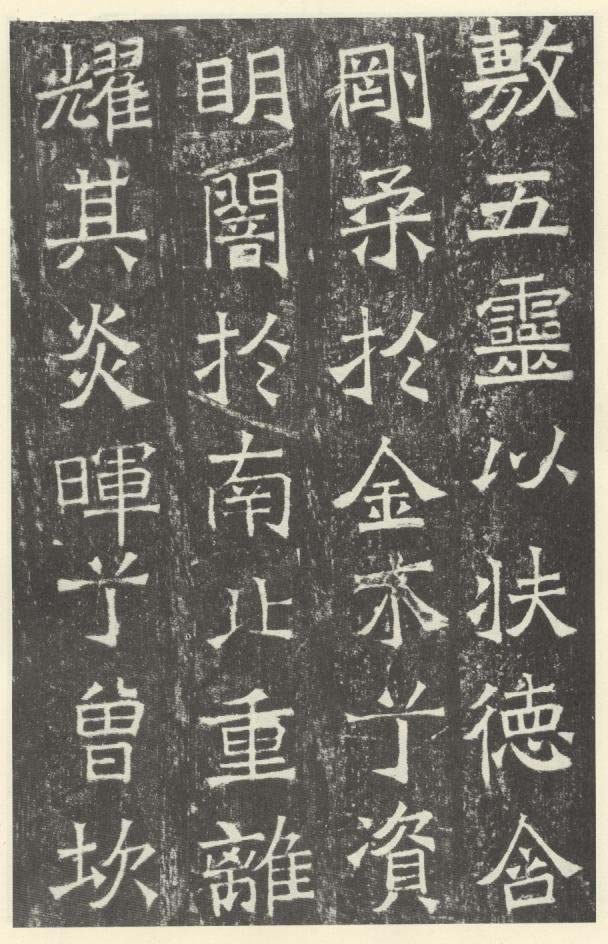 敷五靈以扶徳含
剛柔於金木兮資
明闇於南北重離
耀其炎暉兮曾坎